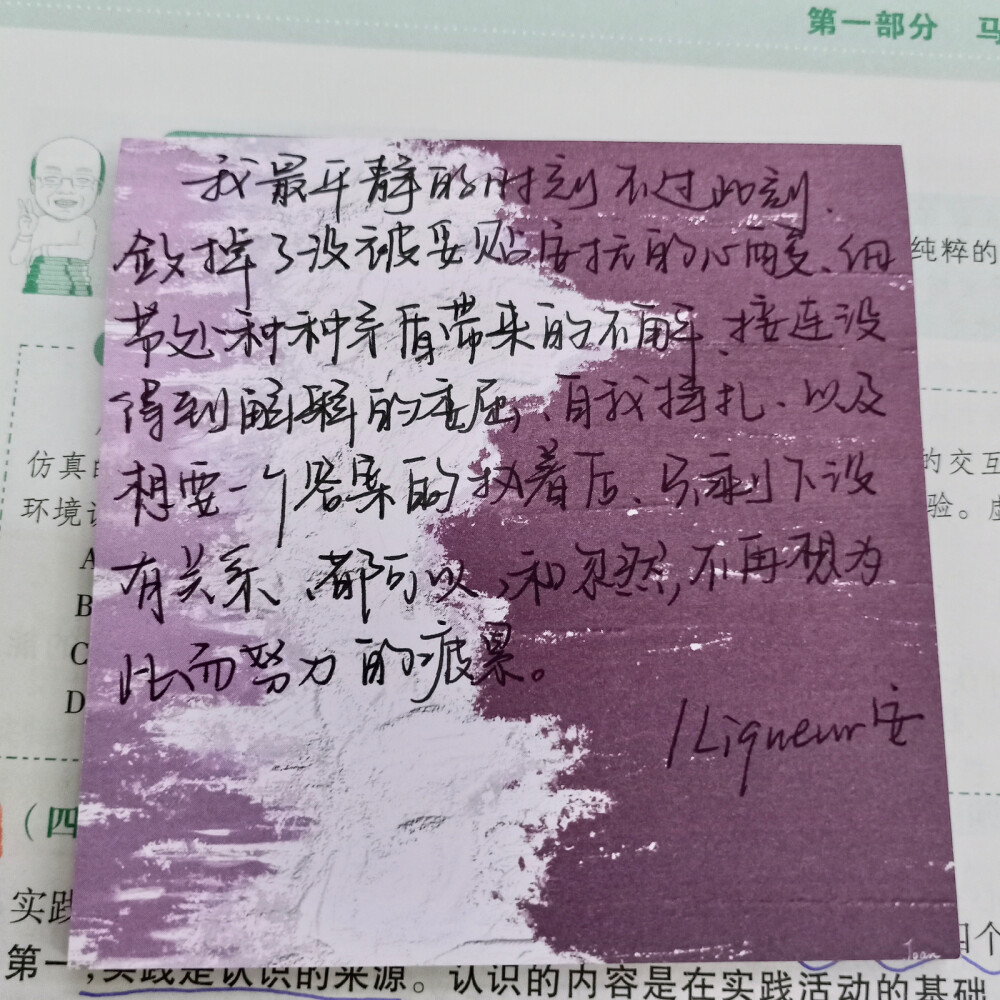 第一部分 马
我最平静的时刻不过此刻、
敛掉了没被妥贴安抚的心酸、细
节处种种矛盾带来的不解、接连没
得到解释的委屈、自我挣扎、以及
想要一个答案的执着后、只剩下没
有关系、都可以,和忽然,不再想为
此而努力的疲累。
/Liqueur安
纯粹的
仿真
的交互
环境
验。虚
A
B
C
D
(四
实践
四个
第一,实践是认识的来源。认识的内容是在实践活动的基础
Joan